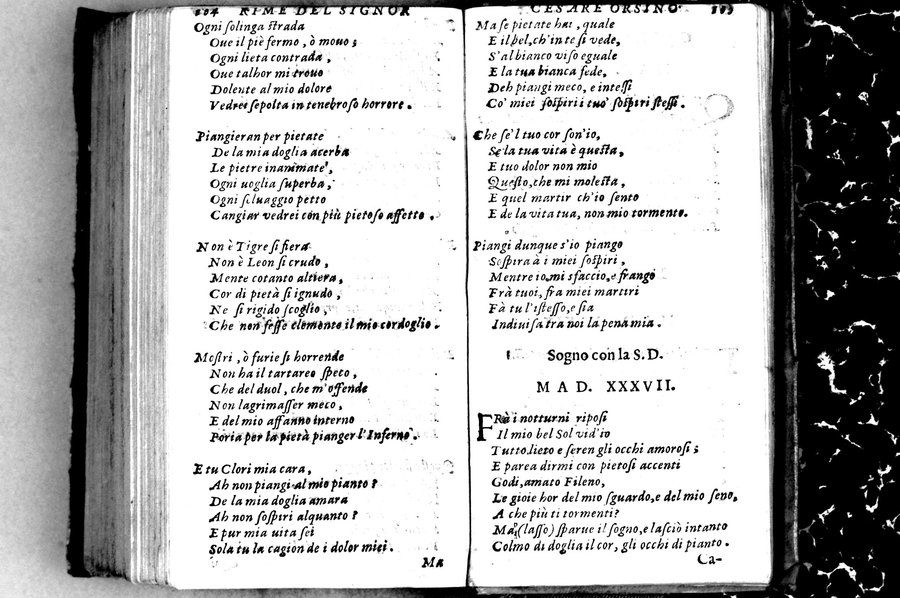 104 RIME DEL SIGNOR
Ogni solinga strada
Oue il piè fermo, ò mouo;
Ogni lieta contrada,
Oue talhor mi trouo
Dolente al mio dolore
Vedrei sepolta in tenebroso horrore.
Piangieran per pietate
De la mia doglia acerba
Le pietre inanimate,
Ogni uoglia superba,
Ogni seluaggio petto
Cangiar vedrei con più pietoso affetto.
Non è Tigre si fiera
Non è Leon si crudo,
Mente cotanto altiera,
Cor di pietà si ignudo,
Ne si rigido scoglio,
Che non fesse clemente il mio cordoglio.
Mostri, ò furie si horrende
Non ha il tartareo speco,
Che del duol, che m'offende
Non lagrimasser meco,
E del mio affanno interno
Poria per la pietà pianger l'Inferno.
E tu Clori mia cara,
Ah non piangi al mio pianto?
De la mia doglia amara
Ah non sospiri alquanto?
E pur mia uita sei
Sola tu la cagion de i dolor miei.
Ma
CESARE ORSINO. 105
Ma se pietate hai, quale
E il bel, ch'in te si vede,
S'al bianco viso eguale
E la tua bianca fede,
Deh piangi meco, e intessi
Co' miei sospiri i tuo' sospiri stessi.
Che se'l tuo cor son'io,
Se la tua vita è questa,
E tuo dolor non mio
Questo, che mi molesta,
E quel martir ch'io sento
E de la vita tua, non mio tormento.
Piangi dunque s'io piango
Sospira à i miei sospiri,
Mentre io mi sfaccio, e frango
Frà tuoi, fra miei martiri
Fà tu l'istesso, e sia
Indiuisa tra noi la pena mia.
Sogno con la S.D.
MAD. XXXVII.
FRà i notturni riposi
Il mio bel Sol vid'io
Tutto lieto e seren gli occhi amorosi;
E parea dirmi con pietosi accenti
Godi, amato Fileno,
Le gioie hor del mio sguardo, e del mio seno,
A che più ti tormenti?
Ma, (lasso) sparue il sogno, e lasciò intanto
Colmo di doglia il cor, gli occhi di pianto.
Ca-